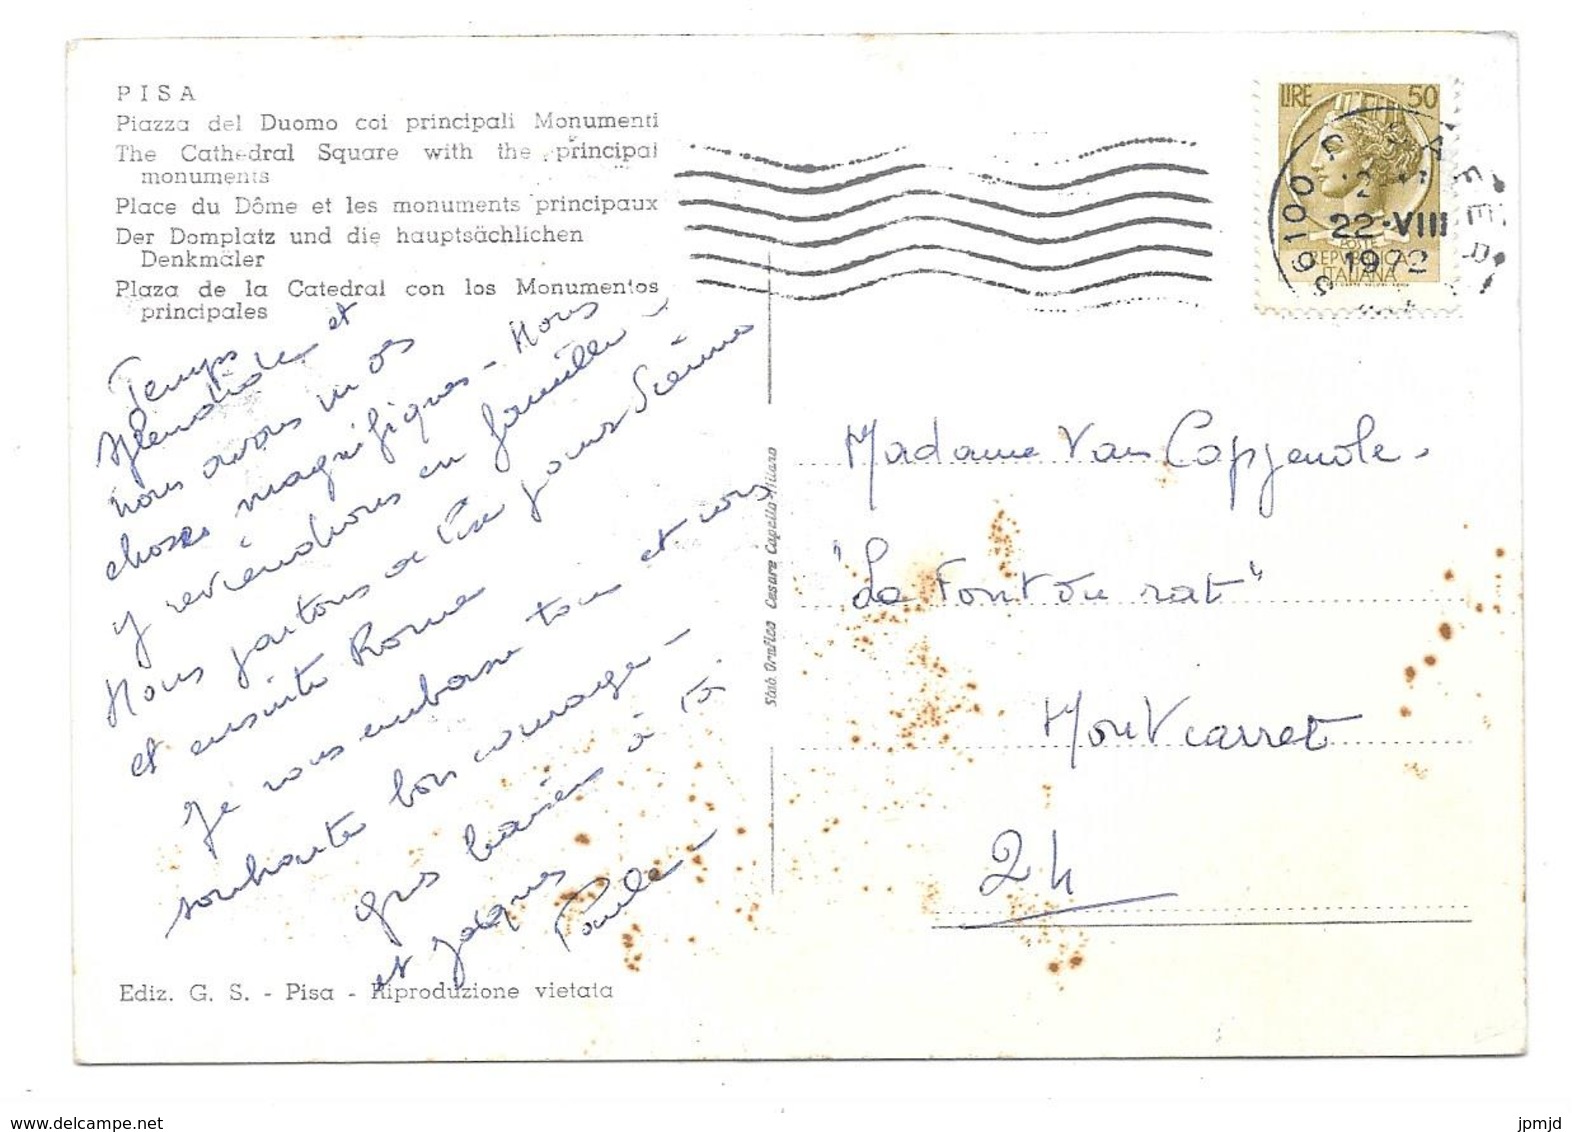 PISA
Piazza del Duomo coi principali Monumenti
The Cathedral Square with the principal
monuments
Place du Dôme et les monuments principaux
Der Domplatz und die hauptsächlichen
Denkmäler
Plaza de la Catedral con los Monumentos
principales
Temps
splendide et
nous avons vu des
choses magnifiques - Nous
y reviendrons en famille -
Nous partons de Pise pour Sienne
et ensuite Rome
Je vous embrasse tous et vous
souhaite bon courage -
gros baisers à toi
et Jacques
Paule -
Ediz. G. S. - Pisa - Riproduzione vietata
Stab. Grafico Cesare Capello - Milano
LIRE 50
56100
22·VIII
1972
POSTE
REPVBBLICA
ITALIANA
Madame Van
"La Font du rat"
Montcarret
24
delcampe.net
jpmjd